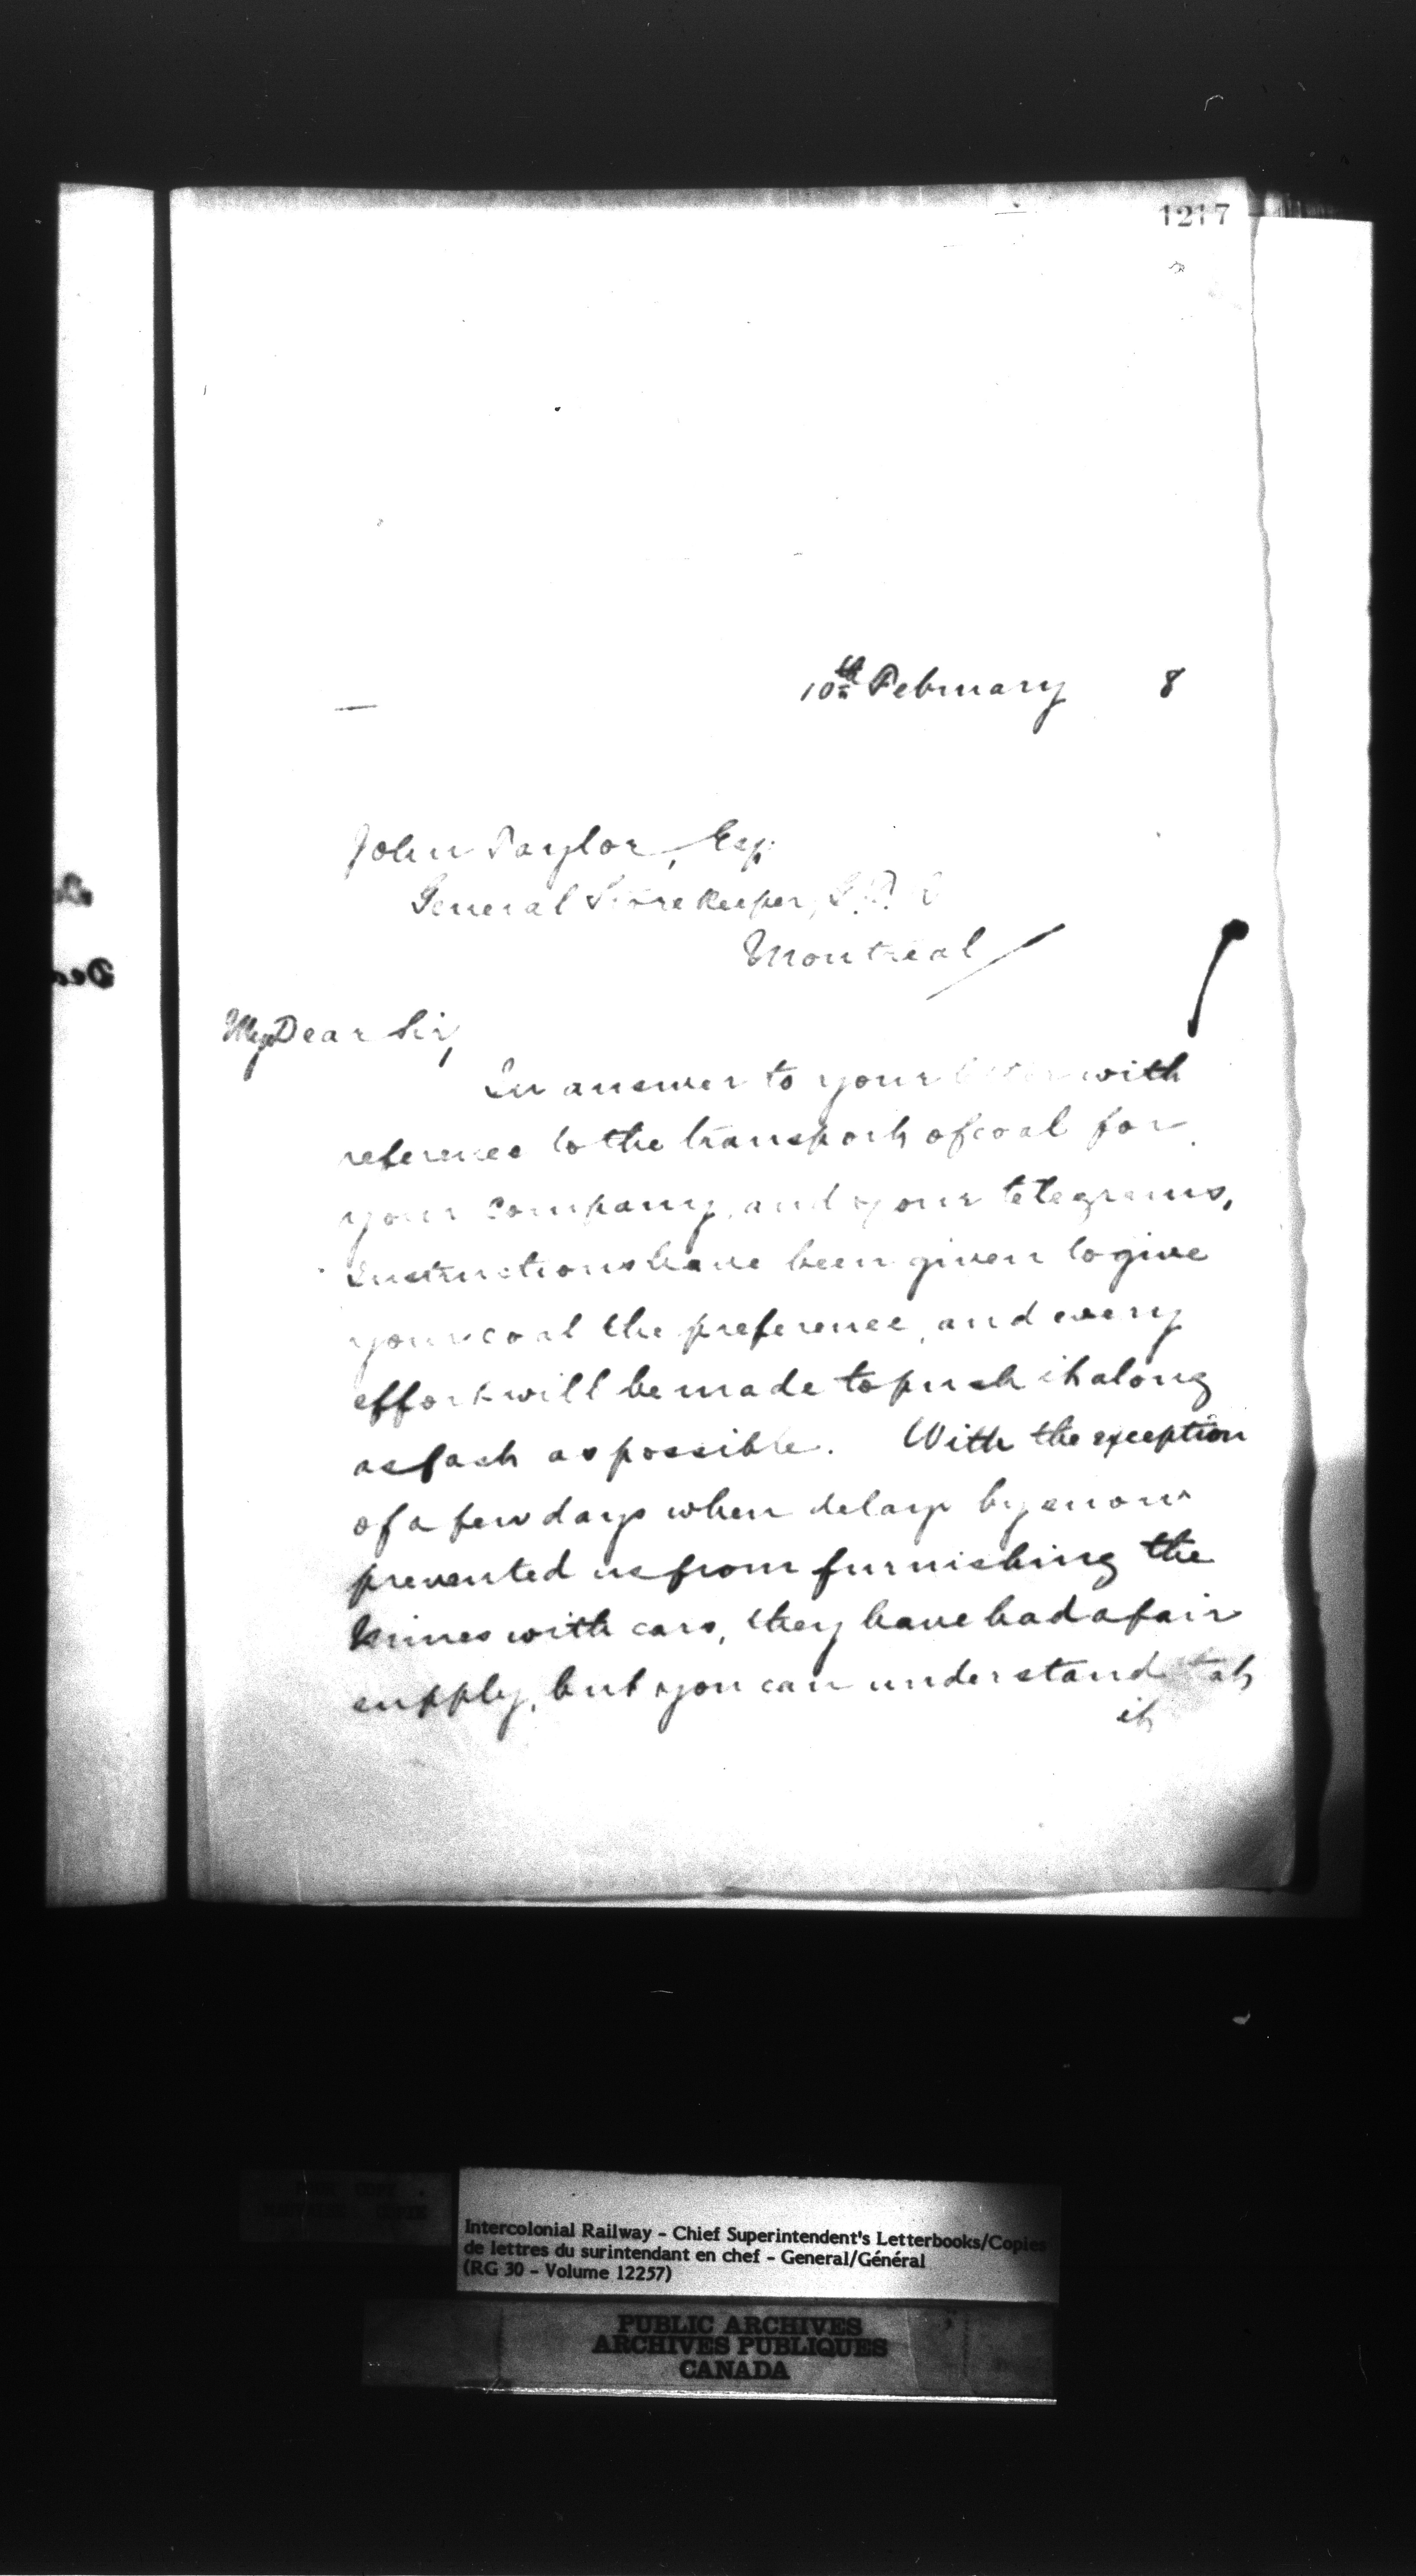 1217
10th February 8
John Taylor, Esq.
General Storekeeper,
Montreal
My Dear Sir,
In answer to your letter with
reference to the transport of coal for
your Company, and your telegrams,
instructions have been given to give
your coal the preference, and every
effort will be made to push it along
as fast as possible. With the exception
of a few days when delays by snow
prevented us from furnishing the
Mines with cars, they have had a fair
supply, but you can understand that
it
Intercolonial Railway - Chief Superintendent's Letterbooks/Copies
de lettres du surintendant en chef - General/Général
(RG 30 - Volume 12257)
PUBLIC ARCHIVES
ARCHIVES PUBLIQUES
CANADA